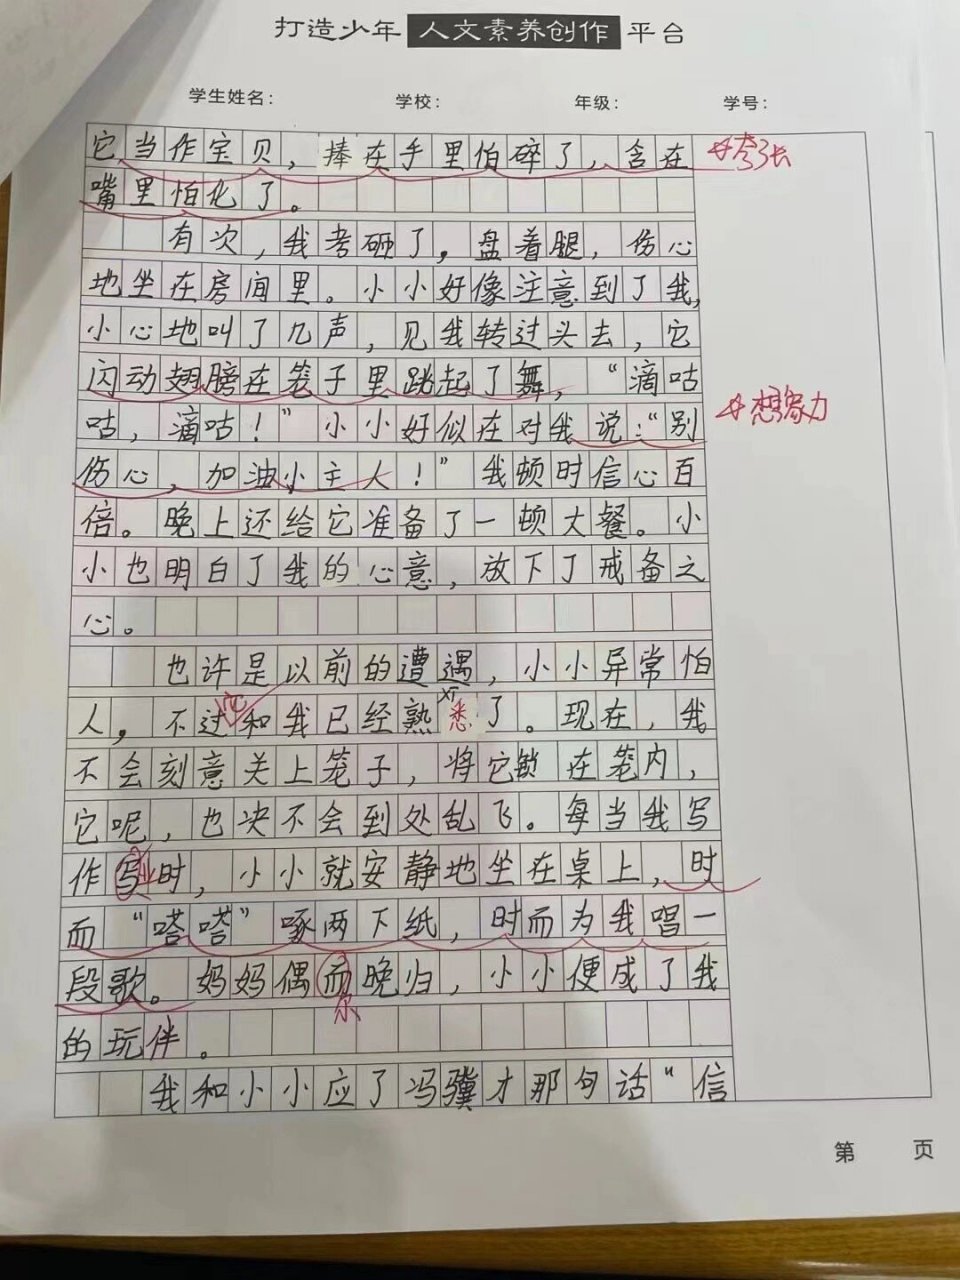 打造少年 人文素养创作 平台
学生姓名： 学校： 年级： 学号：
它当作宝贝，捧在手里怕碎了，含在
夸张
嘴里怕化了。
有次，我考砸了，盘着腿，伤心
地坐在房间里。小小好像注意到了我，
小心地叫了几声，见我转过头去，它
闪动翅膀在笼子里跳起了舞，“滴咕
咕，滴咕！”小小好似在对我说：“别
想象力
伤心，加油小主人！”我顿时信心百
倍。晚上还给它准备了一顿大餐。小
小也明白了我的心意，放下了戒备之
心。
也许是以前的遭遇，小小异常怕
人，不过和我已经熟悉了。现在，我
不会刻意关上笼子，将它锁在笼内，
它呢，也决不会到处乱飞。每当我写
作写时，小小就安静地坐在桌上，时
业
而“嗒嗒”啄两下纸，时而为我唱一
段歌。妈妈偶而晚归，小小便成了我
尔
的玩伴。
我和小小应了冯骥才那句话“信
第 页